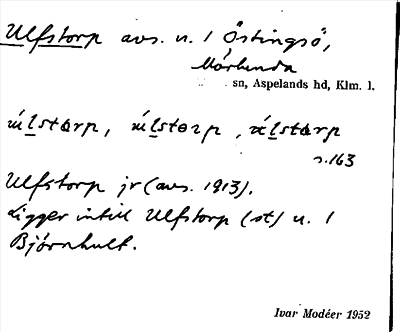 Ulfstorp avs. n. 1 Östingsö,
Mörlunda
sn, Aspelands hd, Klm. l.
úlstɑrp, úlstɵrp, úlstɑrp
s. 163
Ulfstorp jr (avs. 1913).
Ligger intill Ulfstorp (st) u. 1
Björnhult.
Ivar Modéer 1952